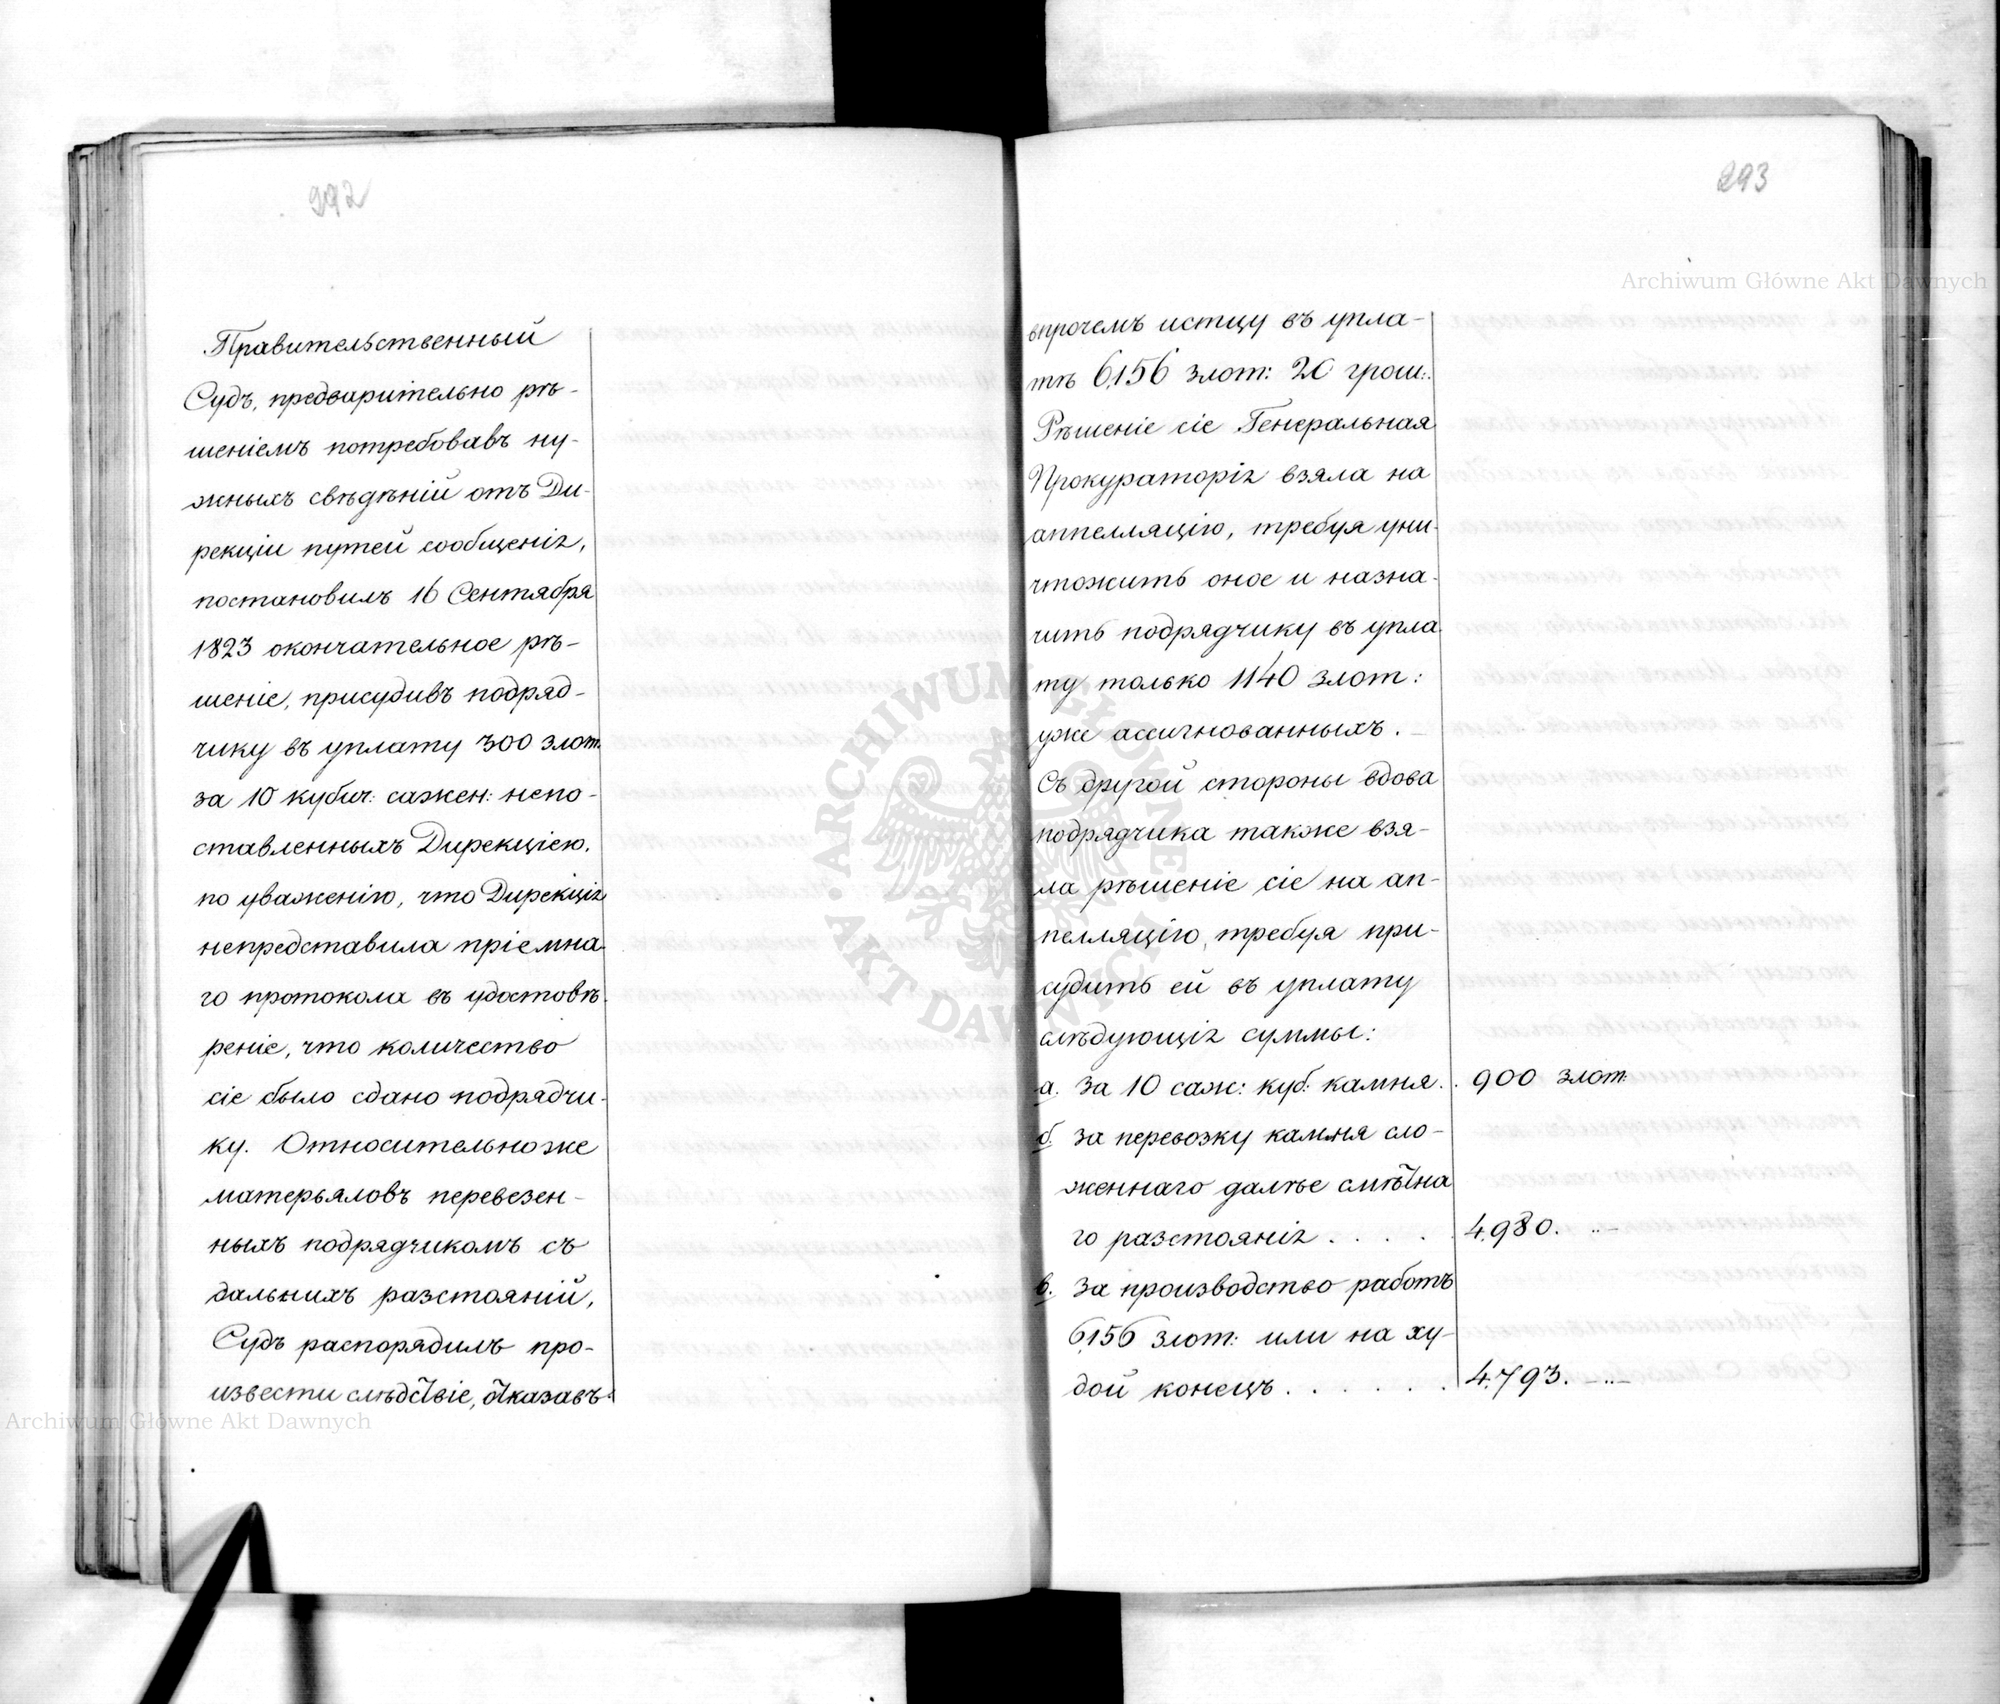 292
Правительственный
Судъ, предварительно рѣ-
шеніемъ потребовавъ ну-
жныхъ свѣдѣній отъ Ди-
рекціи путей сообщенія,
постановилъ 16 Сентября
1823 окончательное рѣ-
шеніе, присудивъ подряд-
чику въ уплату 300 злот.
за 10 кубич: сажен: непо-
ставленныхъ Дирекціею,
по уваженію, что Дирекція
непредставила пріемна-
го протокола въ удостовѣ-
реніе, что количество
сіе было сдано подрядчи-
ку. Относительно же
матерьяловъ перевезен-
ныхъ подрядчикомъ съ
дальнихъ разстояній,
Судъ распорядилъ про-
извести слѣдствіе, отказавъ
293
впрочемъ истцу въ упла-
тѣ 6,156 злот: 20 грош:.
Рѣшеніе сіе Генеральная
Прокураторія взяла на
аппелляцію, требуя уни-
чтожить оное и назна-
чить подрядчику въ упла-
ту только 1140 злот:
уже ассигнованныхъ. –
Съ другой стороны вдова
подрядчика также взя-
ла рѣшеніе сіе на ап-
пелляцію, требуя при-
судить ей въ уплату
слѣдующія суммы:
а. за 10 саж: куб: камня . . 900 злот:
б. за перевозку камня сло-
женнаго далѣе смѣтна
го разстоянія . . . . . 4,980. ..–
в. за производство работъ
6,156 злот: или на ху-
дой конецъ . . . . . . 4,793. –..–
Archiwum Główne Akt Dawnych
Archiwum Główne Akt Dawnych
ARCHIWUM GŁÓWNE · AKT DAWNYCH ·